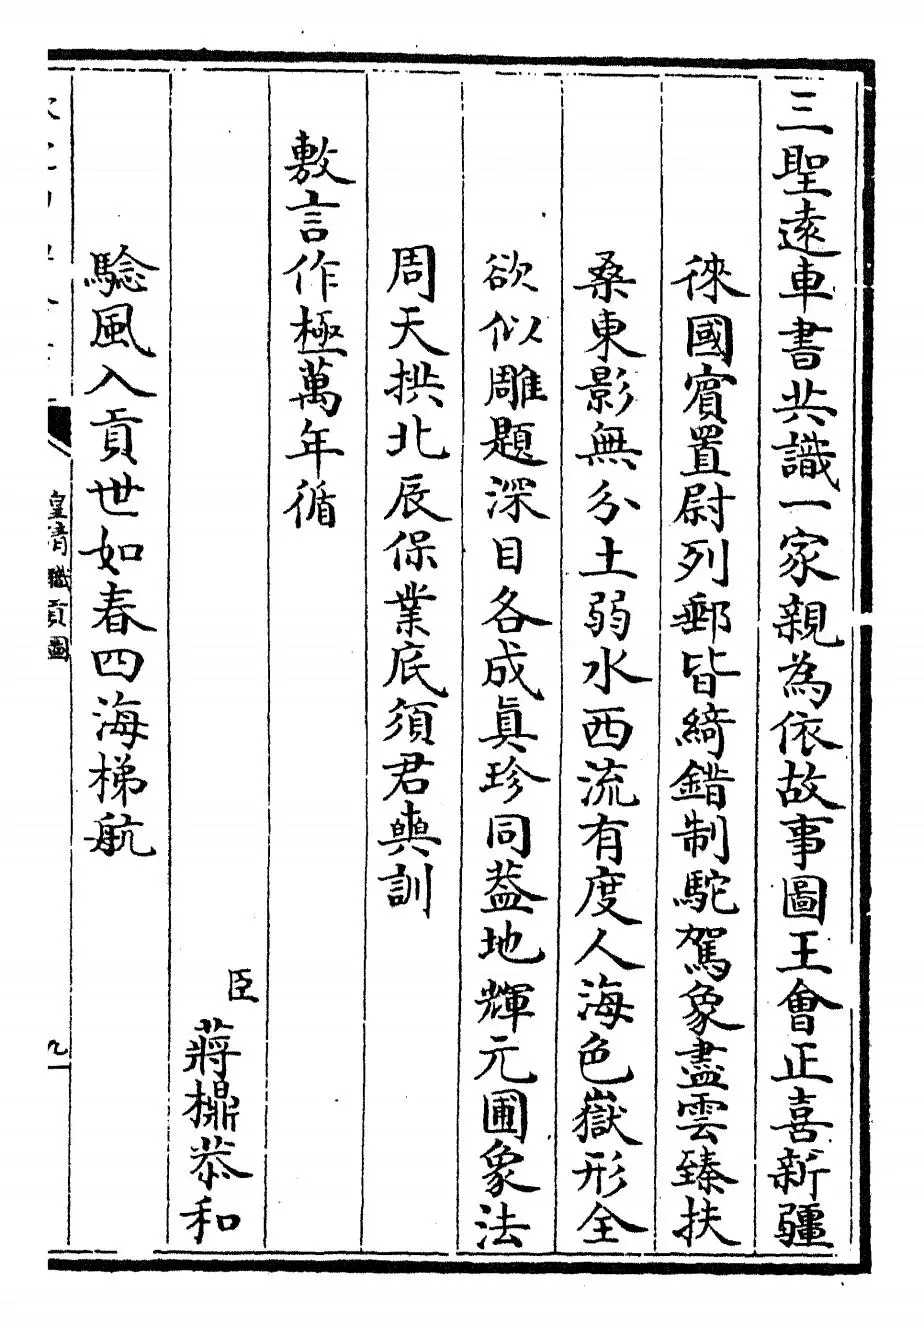 三聖遠車書共識一家親為依故事圖王會正喜新疆
徠國賓置尉列郵皆綺錯制駝駕象盡雲臻扶
桑東影無分土弱水西流有度人海色嶽形全
欲似雕題深目各成眞珍同葢地輝元圃象法
周天拱北辰保業底須君奭訓
敷言作極萬年循
臣蔣檙恭和
驗風入貢世如春四海梯航
皇清職貢圖
九